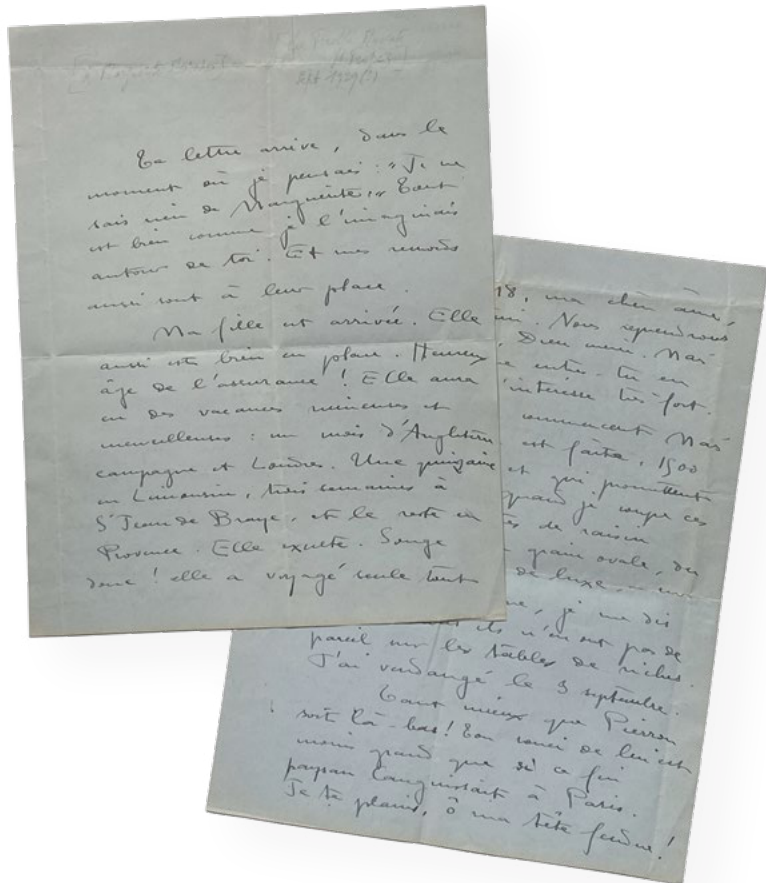 [à Marguerite Moreno]
Sept 1929 (?)
Ta lettre arrive, dans le
moment où je pensais : "Je ne
sais rien de Marguerite." Tout
est bien comme je l'imaginais
autour de toi. Et mes remords
aussi sont à leur place.
Ma fille est arrivée. Elle
aussi est bien en place. Heureux
âge de l'assurance ! Elle aura
eu des vacances ruineuses et
merveilleuses : un mois d'Angleterre
campagne et Londres. Une quinzaine
en Limousin, trois semaines à
S' Jean de Braye, et le reste en
Provence. Elle exulte. Songe
donc ! elle a voyagé seule tout
18, ma chère âme,
Nous reprendrons
Dieu merci. Mais
entres-tu en
'intéresse très fort.
commencent Mais
est faite, 1500
et qui promettent
quand je coupe ces
de raisin
grain ovale, du
de luxe
, je me dis
ils n'en ont pas de
pareil sur les tables de riches.
J'ai vendangé le 3 septembre.
Tant mieux que Pierron
soit là-bas ! Ton souci de lui est
moins grand que si ce fin
paysan languissait à Paris.
Je te plains, ô ma tête fendue !